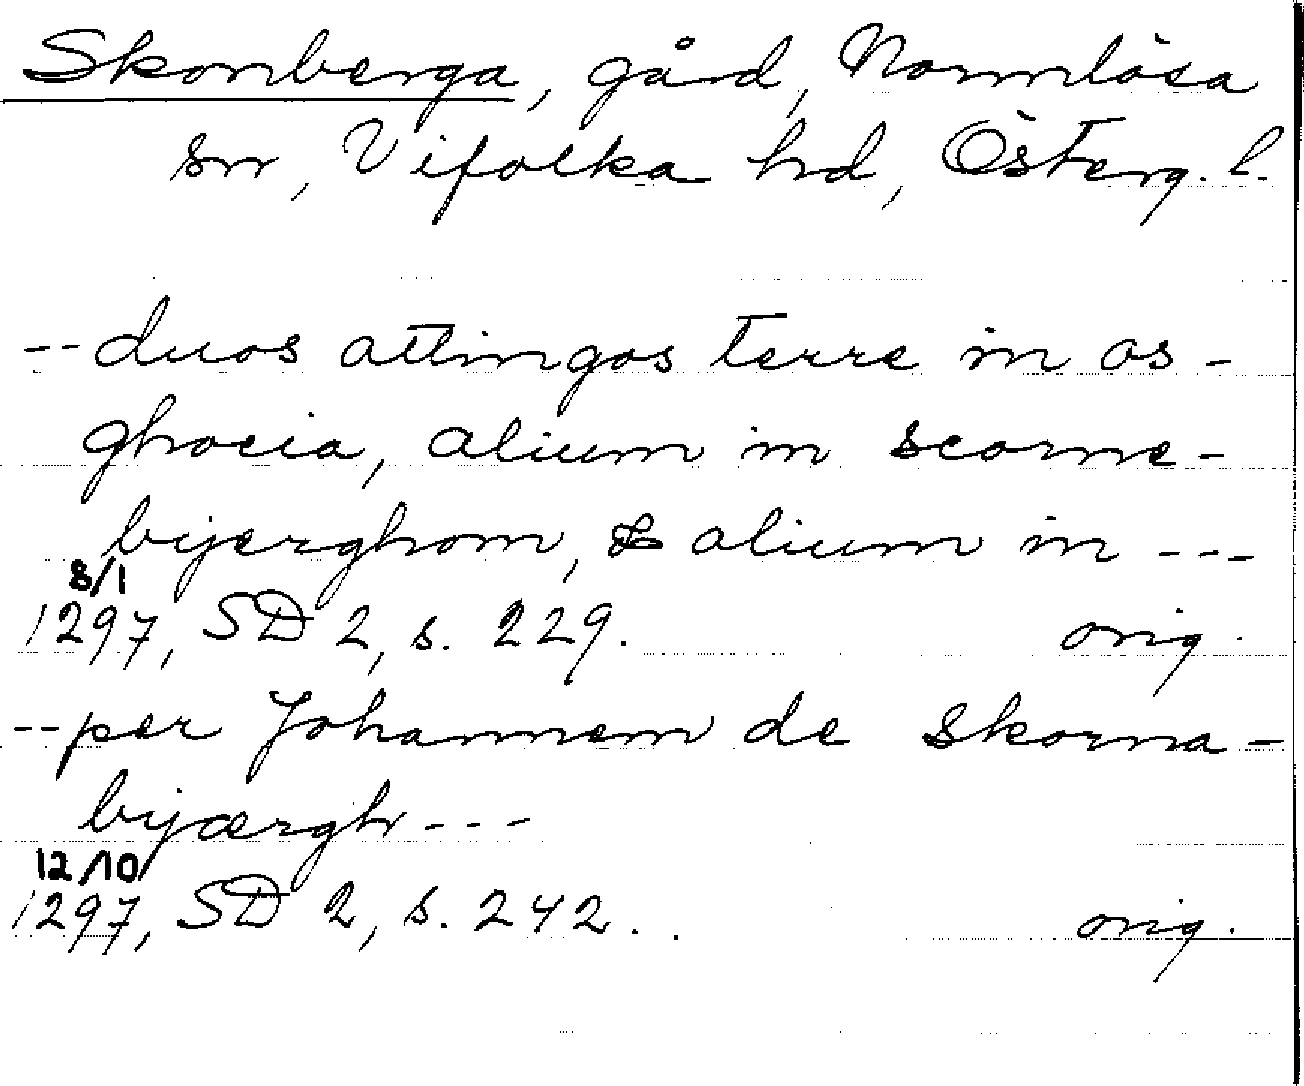 Skorberga, gård, Normlösa
sn, Vifolka hd, Österg. l.
-- duos attingos terre in os-
ghocia, alium in scorne-
bijerghom, & alium in ---
8/1
1297, SD 2, s. 229. orig.
-- per Johannem de Skorna-
bijærgh ---
12/10
1297, SD 2, s. 242. orig.